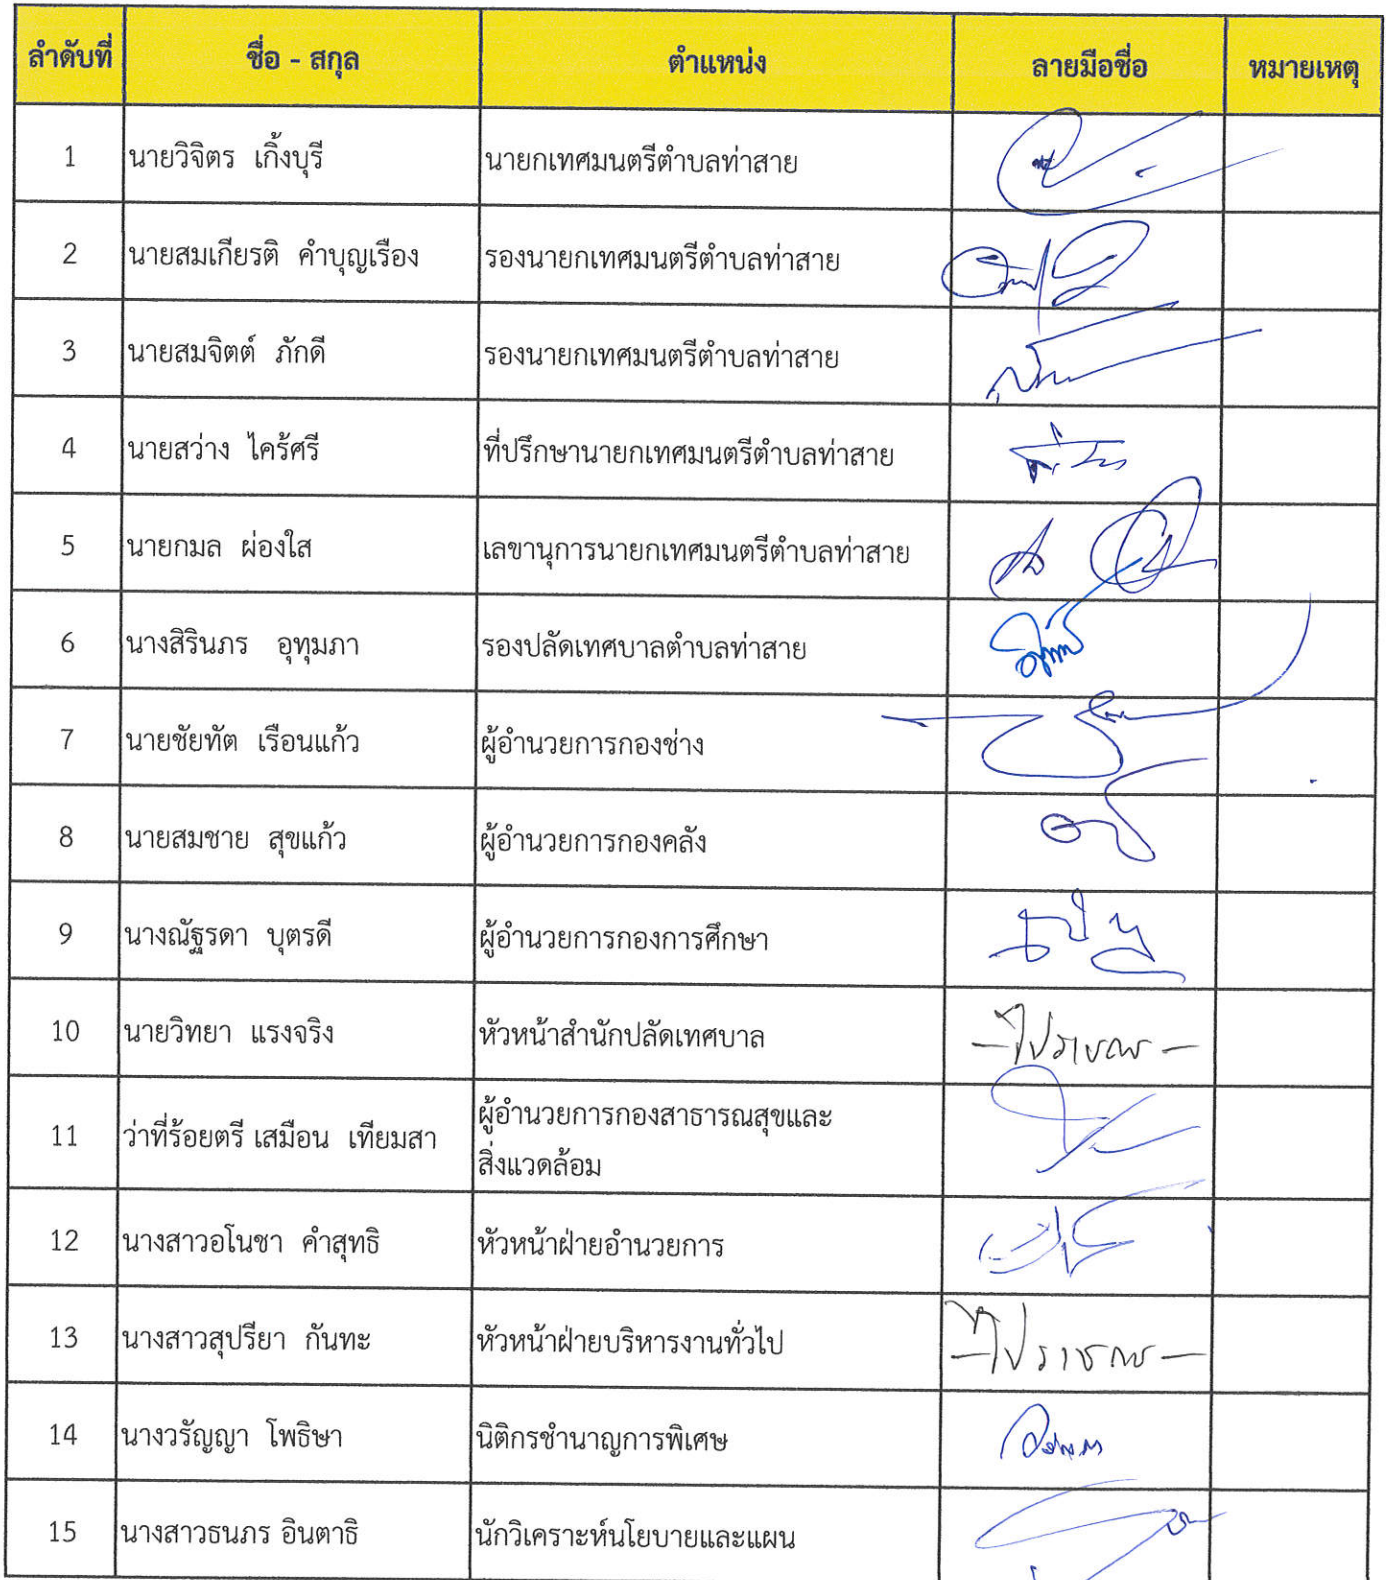 ลำดับที่ ชื่อ - สกุล ตำแหน่ง ลายมือชื่อ หมายเหตุ
1 นายวิจิตร เกิ้งบุรี นายกเทศมนตรีตำบลท่าสาย
2 นายสมเกียรติ คำบุญเรือง รองนายกเทศมนตรีตำบลท่าสาย
3 นายสมจิตต์ ภักดี รองนายกเทศมนตรีตำบลท่าสาย
4 นายสว่าง ไคร้ศรี ที่ปรึกษานายกเทศมนตรีตำบลท่าสาย
5 นายกมล ผ่องใส เลขานุการนายกเทศมนตรีตำบลท่าสาย
6 นางสิรินภร อุทุมภา รองปลัดเทศบาลตำบลท่าสาย
7 นายชัยทัต เรือนแก้ว ผู้อำนวยการกองช่าง
8 นายสมชาย สุขแก้ว ผู้อำนวยการกองคลัง
9 นางณัฐรดา บุตรดี ผู้อำนวยการกองการศึกษา
10 นายวิทยา แรงจริง หัวหน้าสำนักปลัดเทศบาล -ไปราชการ-
11 ว่าที่ร้อยตรี เสมือน เทียมสา ผู้อำนวยการกองสาธารณสุขและ
สิ่งแวดล้อม
12 นางสาวอโนชา คำสุทธิ หัวหน้าฝ่ายอำนวยการ
13 นางสาวสุปรียา กันทะ หัวหน้าฝ่ายบริหารงานทั่วไป -ไปราชการ-
14 นางวรัญญา โพธิษา นิติกรชำนาญการพิเศษ
15 นางสาวธนภร อินตาธิ นักวิเคราะห์นโยบายและแผน